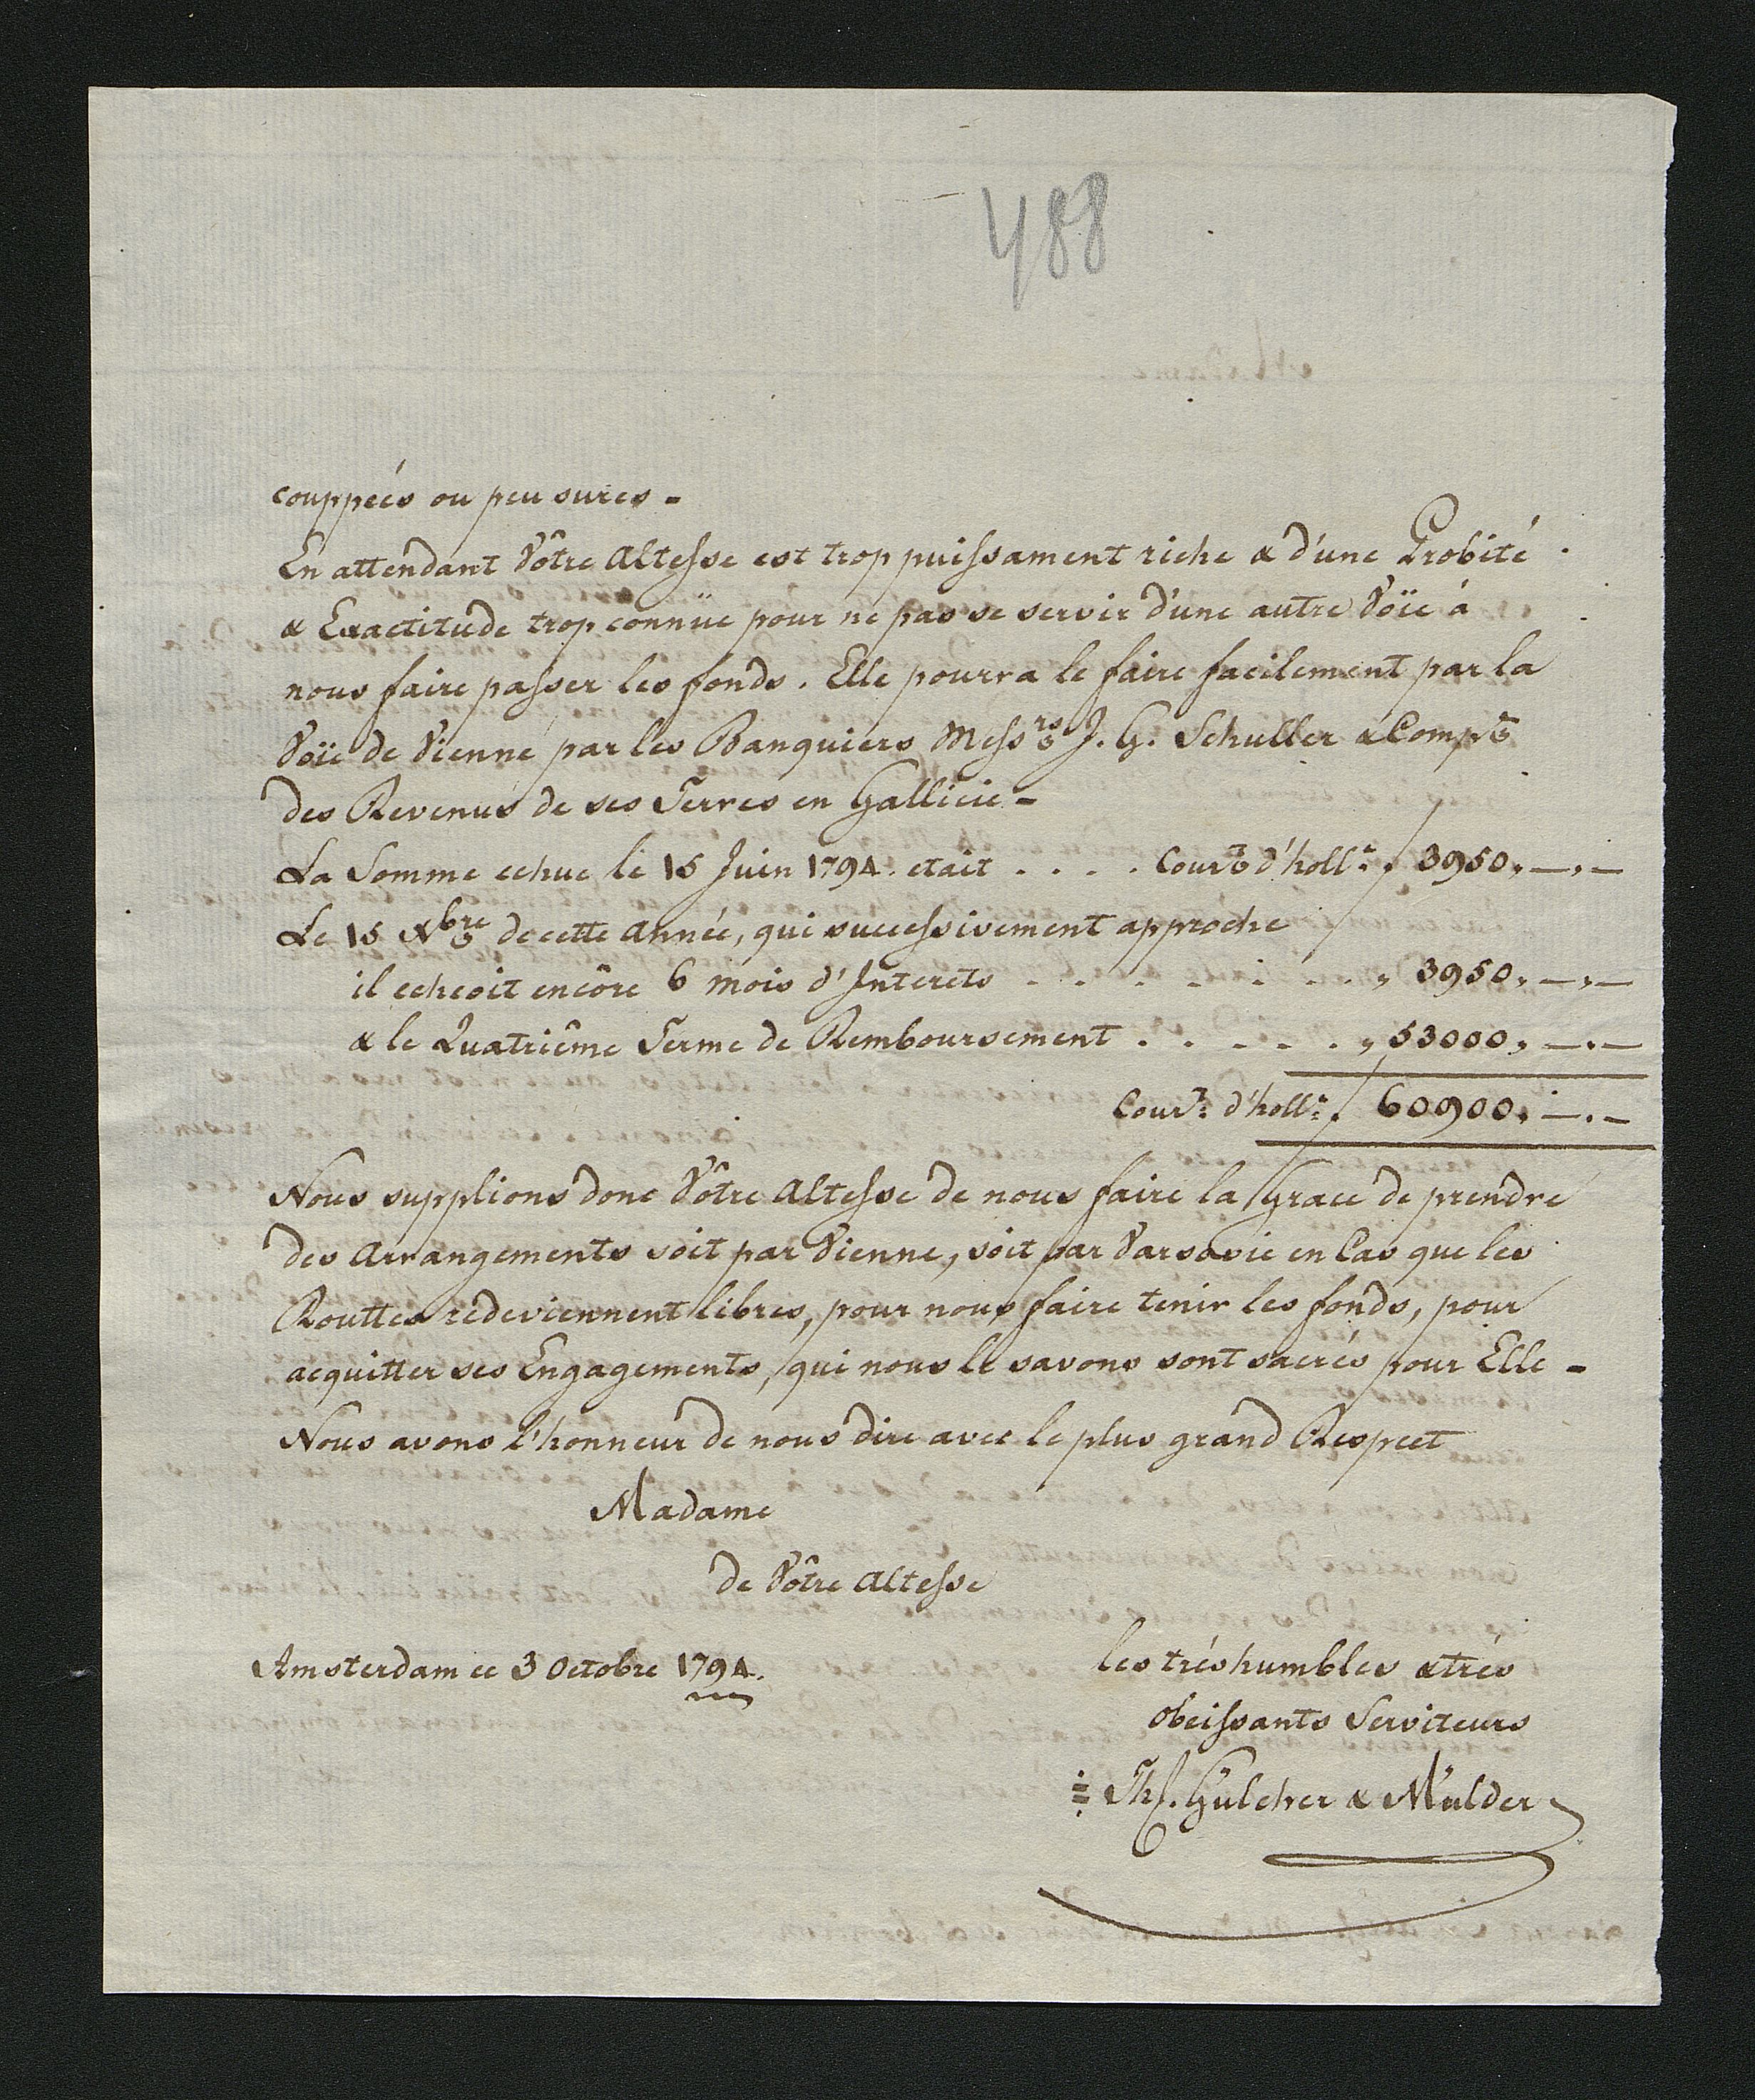 488
couppeés ou peu sures -
En attendant Vôtre Altesse est trop puissament riche & d'une Probité
& Exactitude trop connüe pour ne pas se servir d'une autre Voïe à
nous faire passer les fonds. Elle pourra le faire facilement par la
Voïe de Vienne par les Banquiers Messrs J. G. Schuller & Compe
des Revenus de ses Terres en Gallicie -
La Somme echue le 15 Juin 1794. etait . . . . Court d'holle f 3950,—,—
Le 15 Xbre de cette Année, qui successivement approche
il echeoit encôre 6 mois d'Interets . . . . . . . „ 3950,—,—
& le Quatriême Terme de Remboursement . . . . . „ 53000,—.—
Court d'holle f 60900.—.—
Nous supplions donc Vôtre Altesse de nous faire la Grace de prendre
des Arrangements soit par Vienne, soit par Varsovie en Cas que les
Routtes redeviennent libres, pour nous faire tenir les fonds, pour
acquitter ses Engagements, qui nous le savons sont sacrés pour Elle -
Nous avons l'honneur de nous dire avec le plus grand Respect
Madame
de Vôtre Altesse
Amsterdam ce 3 Octobre 1794.
les trés humbles & trés
obeissants Serviteurs
Th. Gülcher & Mülder